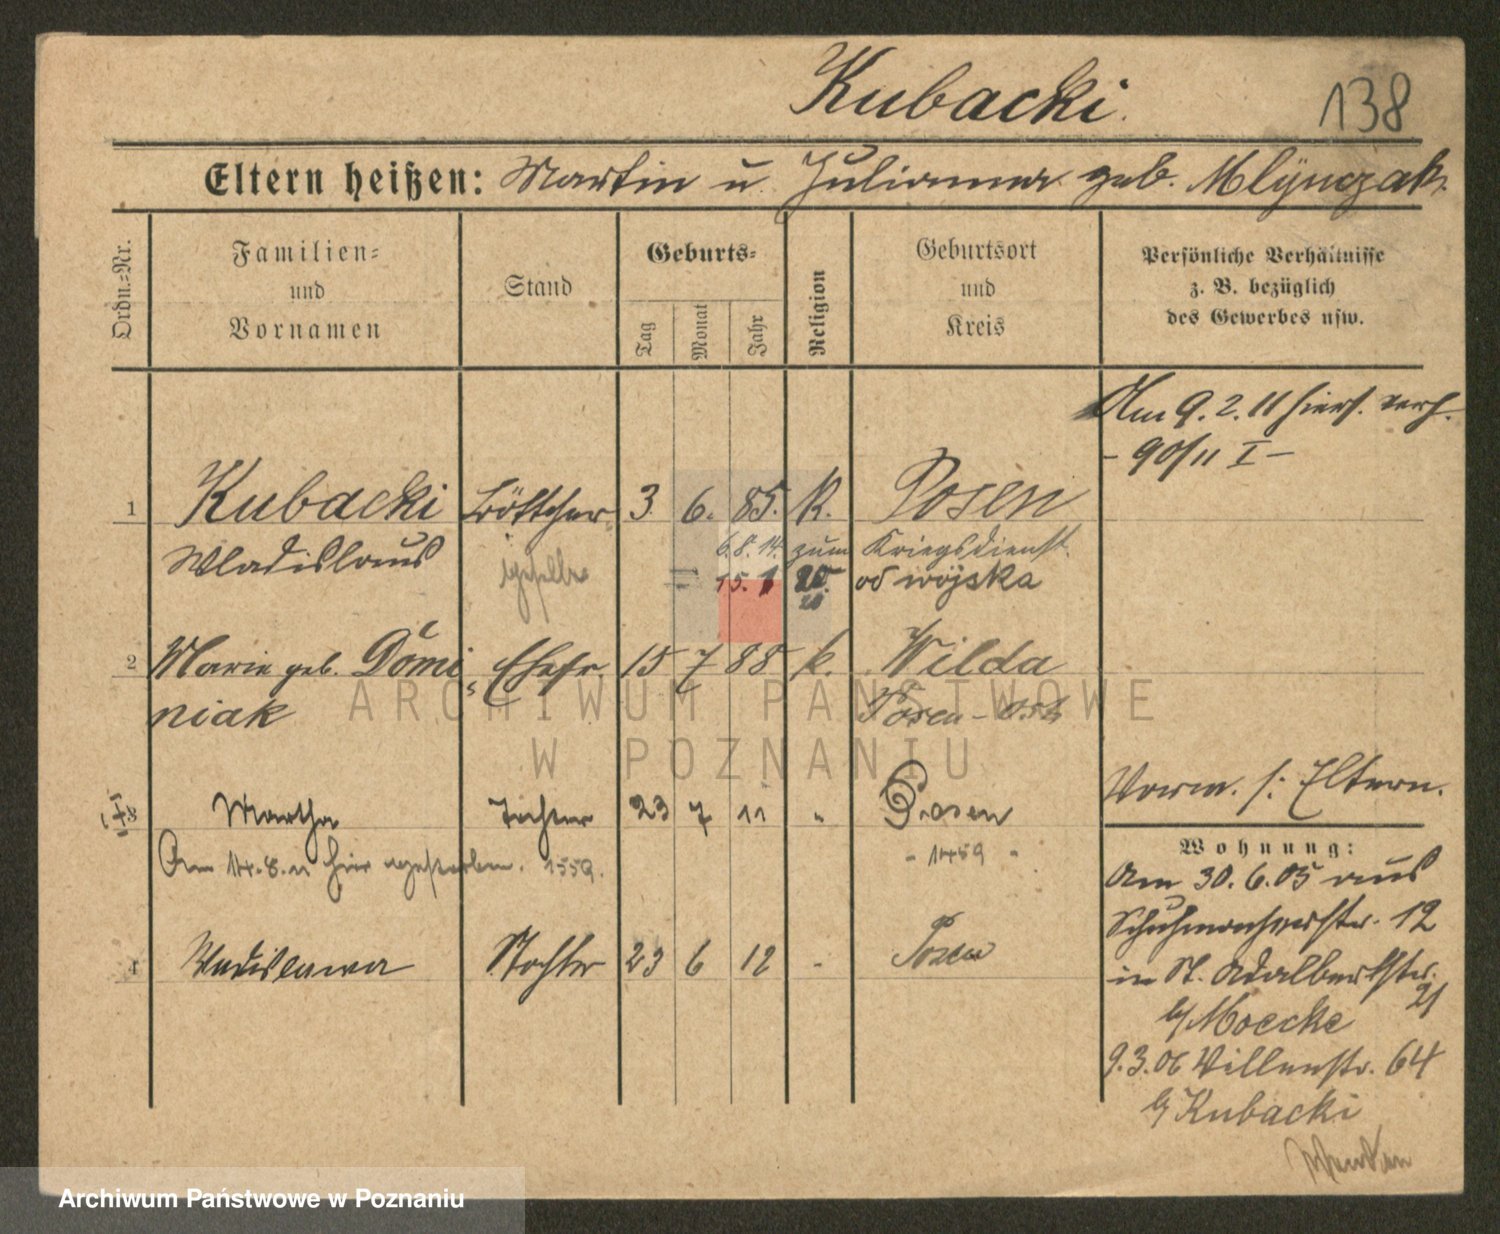 Kubacki.
138
Eltern heißen: Martin u. Julianna geb. Mlynczak.
Ordn.-Nr.
Familien- und Vornamen
Stand
Geburts-
Tag
Monat
Jahr
Religion
Geburtsort und Kreis
Persönliche Verhältnisse
z. B. bezüglich
des Gewerbes usw.
Am 9. 2. 11 hiers. verh.
- 90/11 I -
1 Kubacki Böttcher 3. 6. 85. K. Posen
Wladislaus geselle 6. 8. 14. zum Kriegsdienst.
= 15. 1 20. od wojska
20
2 Marie geb. Domi- Ehefr. 15 7 88 k. Wilda
niak Posen - Ost
Vorm. s: Eltern.
3 Martha Tochter 23 7 11 " Posen
Am 14. 8. 11 hier gestorben. 1559. - 1459 -
4 Wladislawa Tochter 23 6 12 - Posen
Wohnung:
Am 30. 6. 05 aus
Schuhmacherstr. 12
in St. Adalbertstr.
21
b/ Moecke
9. 3. 06 Villenstr. 64
b/ Kubacki
ARCHIWUM PAŃSTWOWE
W POZNANIU
Archiwum Państwowe w Poznaniu